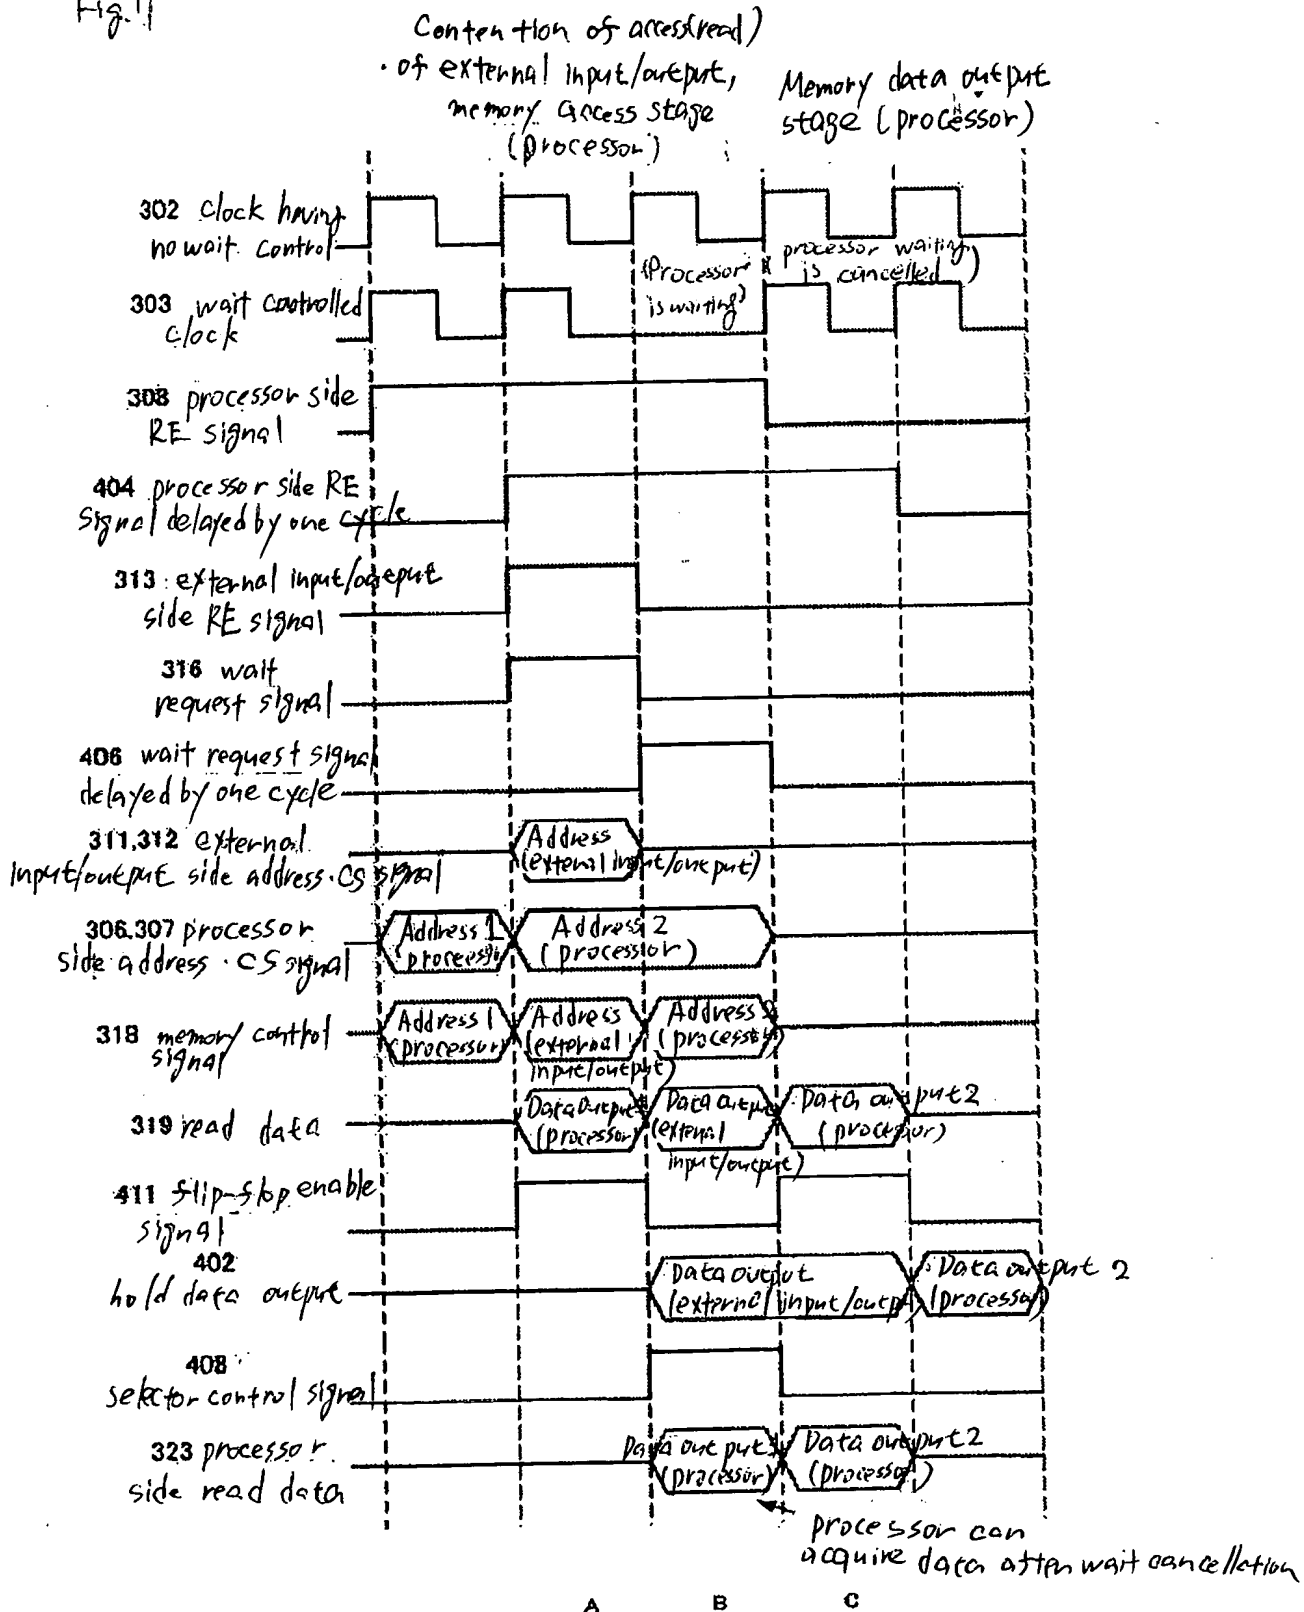 Fig. 11
Contention of access(read)
of external input/output,
memory access stage
(processor)
Memory data output
stage (processor)
302 clock having
no wait control
(Processor
is waiting)
( processor waiting
is cancelled )
303 wait controlled
clock
308 processor side
RE signal
404 processor side RE
signal delayed by one cycle
313 external input/output
side RE signal
316 wait
request signal
406 wait request signal
delayed by one cycle
311,312 external
input/output side address·CS signal
Address
(external input/output)
306,307 processor
side address·CS signal
Address 1
(processor)
Address 2
(processor)
318 memory control
signal
Address 1
(processor)
Address
(external
input/output)
Address 2
(processor)
319 read data
Data output
(processor)
Data output
(external
input/output)
Data output 2
(processor)
411 flip-flop enable
signal
402
hold data output
Data output
(external input/output)
Data output 2
(processor)
408
selector control signal
323 processor
side read data
Data output
(processor)
Data output 2
(processor)
processor can
acquire data after wait cancellation
A B C